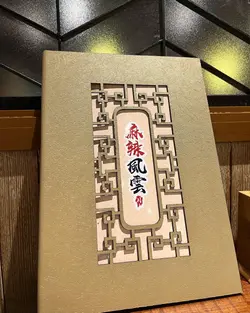 麻辣風雲